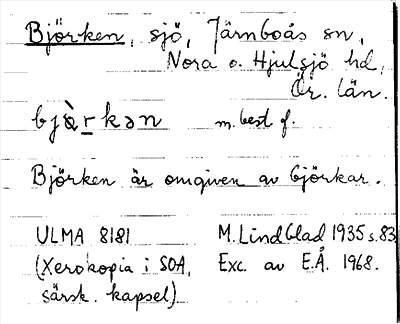 Björken, sjö, Järnboås sn,
Nora o. Hjulsjö hd,
Ör. län.
bjὰrkən m. best f.
Björken är omgiven av björkar.
ULMA 8181 M. Lindblad 1935 s. 83
(Xerokopia i SOA, Exc. av E.Å. 1968.
särsk. kapsel)